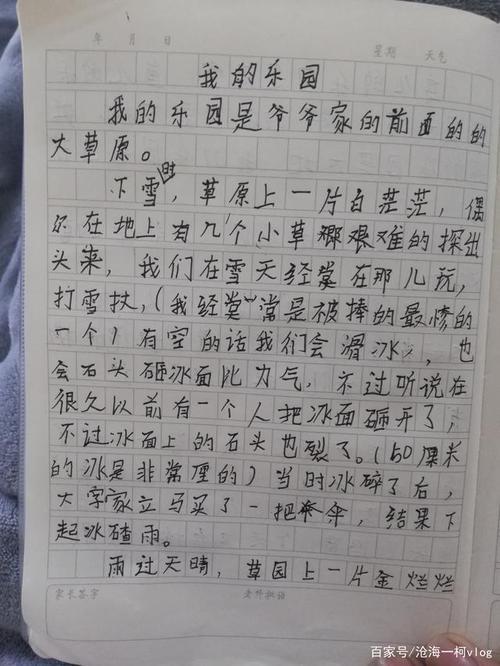 年 月 日 星期 天气
我的乐园
我的乐园是爷爷家的前面的的
大草原。
下雪时，草原上一片白茫茫，偶
尔在地上有几个小草艰难的探出
头来，我们在雪天经堂在那儿玩，
打雪扙，（我经堂常是被捧的最惨的
一个）有空的话我们会滑冰，也
会石头砸冰面比力气，不过听说在
很久以前有一个人把冰面砸开了，
不过冰面上的石头也裂了。（50厘米
的冰是非常厘的）当时冰碎了后，
大字家立马买了一把伞，结果下
起冰碴雨。
雨过天晴，草园上一片金烂烂
家长签字 老师批语
百家号/沧海一柯vlog